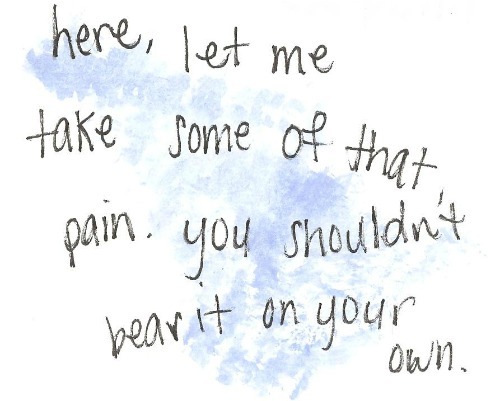 here, let me
take some of that
pain. you shouldn't
bear it on your
own.